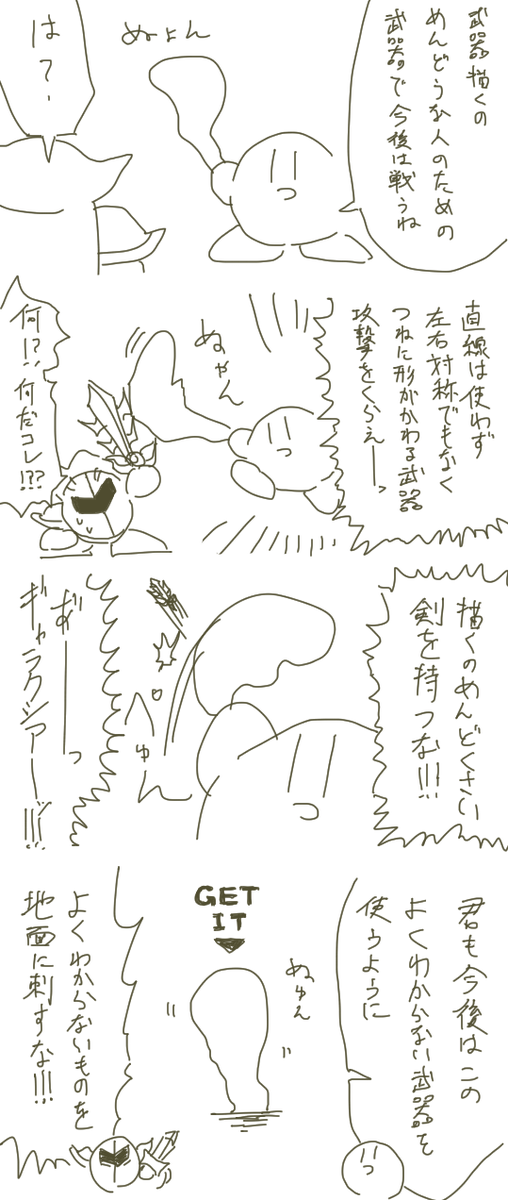 武器描くの
めんどうな人のための
武器で今後は戦うね
ぬょん
は?
直線は使わず
左右対称でもなく
つねに形がかわる武器
攻撃をくらえーーっ
ぬゃん
何!?何だコレ!??
描くのめんどくさい
剣を持つな!!!
ゅ
あ゛ーーっ
ギャラクシアー!!!
君も今後はこの
よくわからない武器を
使うように
ぬゅん
GET
IT
よくわからないものを
地面に刺すな!!!